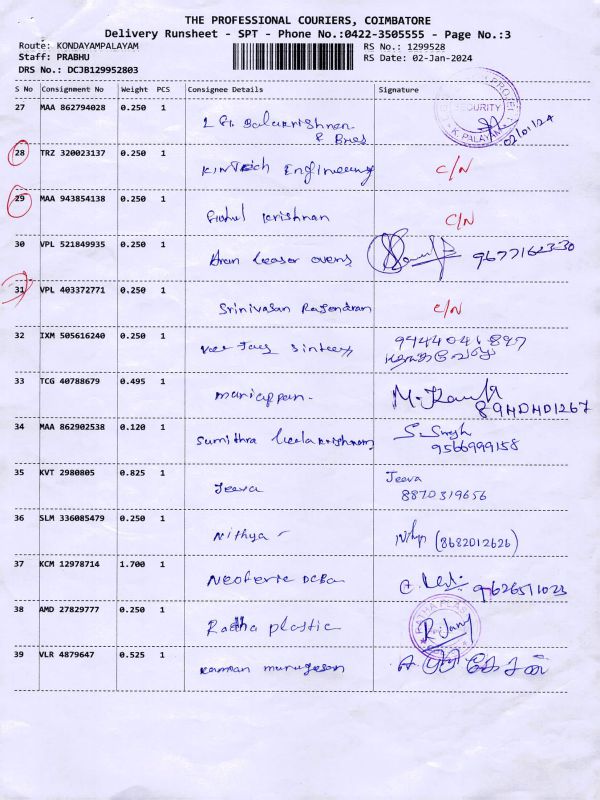 THE PROFESSIONAL COURIERS, COIMBATORE
Delivery Runsheet - SPT - Phone No.:0422-3505555 - Page No.:3
Route: KONDAYAMPALAYAM RS No.: 1299528
Staff: PRABHU RS Date: 02-Jan-2024
DRS No.: DCJB129952803
S No Consignment No Weight PCS Consignee Details Signature
27 MAA 862794028 0.250 1 Balakrishnan & Bros SECURITY K. PALAYAM 02/01/24
28 TRZ 320023137 0.250 1 Kintech Engineering C/N
29 MAA 943854138 0.250 1 Krishnan C/N
30 VPL 521849935 0.250 1 9677162330
31 VPL 403372771 0.250 1 Srinivasan Rajendran C/N
32 IXM 505616240 0.250 1
33 TCG 40788679 0.495 1 Mariappan.
34 MAA 862902538 0.120 1 Sumithra 9566999158
35 KVT 2980805 0.825 1 Jeeva Jeeva
8870319656
36 SLM 336085479 0.250 1 Nithya (8682012626)
37 KCM 12978714 1.700 1
38 AMD 27829777 0.250 1 Radha plastic
39 VLR 4879647 0.525 1 murugesan